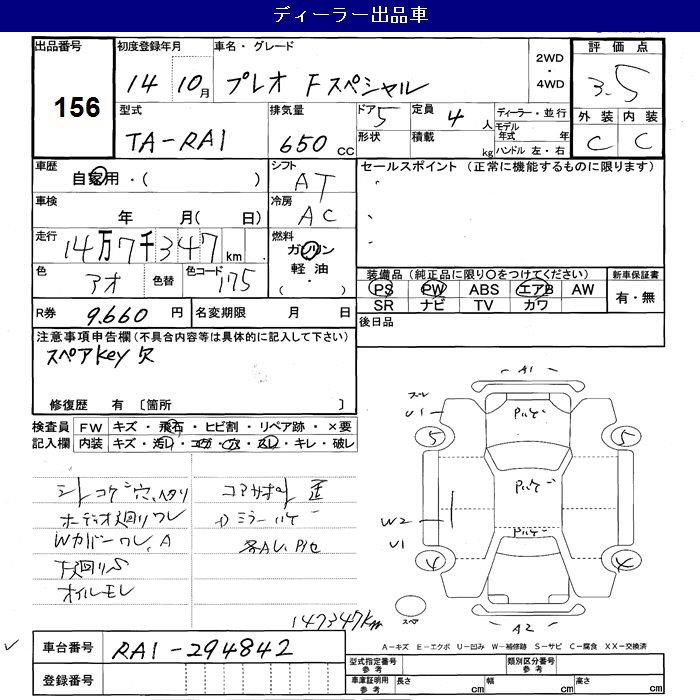 ディーラー出品車
出品番号
156
初度登録年月
14 10月
車名・グレード
プレオ Fスペシャル
2WD
・
4WD
評価点
3.5
外装 内装
C C
型式
TA-RA1
排気量
650 CC
ドア 5
形状
定員 4 人
積載 kg
ディーラー・並行
モデル年式 年
ハンドル 左・右
車歴
自家用・( )
シフト
AT
車検
年 月( 日)
冷房
AC
走行
14万7千347km
燃料
ガソリン
軽油
( ・ )
色
アオ
色替
色コード 175
R券 9,660 円
名変期限 月 日
セールスポイント (正常に機能するものに限ります)
装備品 (純正品に限り○をつけてください)
PS PW ABS エアB AW
SR ナビ TV カワ
新車保証書
有・無
後日品
注意事項申告欄(不具合内容等は具体的に記入して下さい)
スペアkey欠
修復歴 有 〔箇所 〕
検査員 FW キズ・飛石・ヒビ割・リペア跡・×要
記入欄 内装 キズ・汚れ・コゲ・穴・スレ・キレ・破レ
シートコゲ穴、ヘタリ
オーディオ廻りワレ
Wカバーワレ、A
下廻りS
オイルモレ
コアサポート歪
ミラーハゲ
各AU、Pハゲ
147347km
A1
スレ
U1
Pハゲ
5
5
Pハゲ
W2
U1
Pハゲ
4
4
スペア
A2
A-キズ E-エクボ U-凹み W-補修跡 S-サビ C-腐食 XX-交換済
車台番号 RA1-294842
登録番号
型式指定番号
参考
類別区分番号
参考
車庫証明用
参考
長さ cm 幅 cm 高さ cm